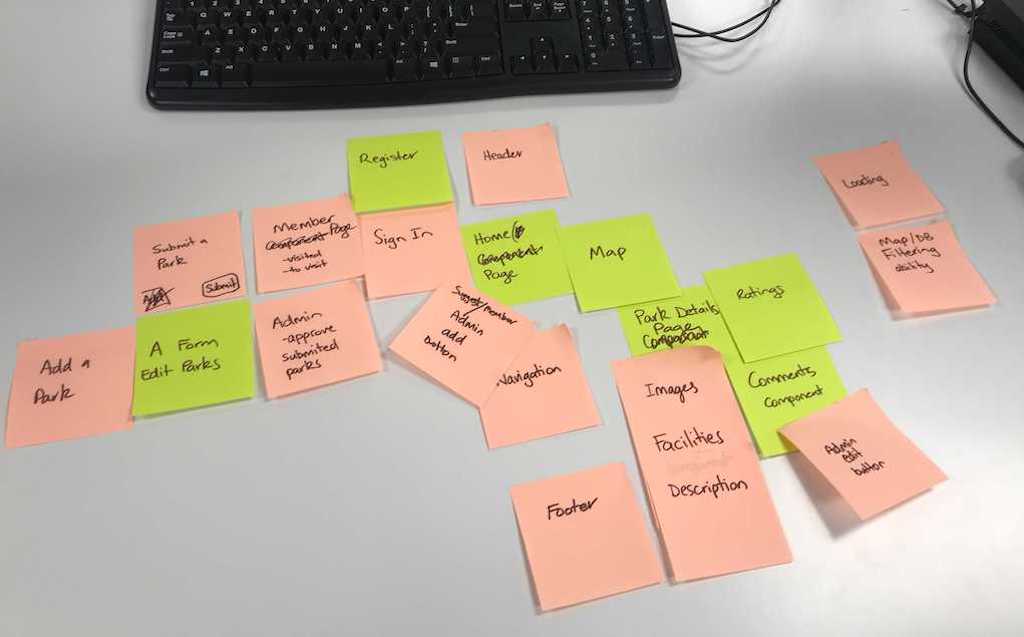 Register
Header
Loading
Submit a
Park
Add
Submit
Member
Component Page
-visited
-to visit
Sign In
Home
Component
Page
Map
Map/DB
Filtering
ability
Add a
Park
A Form
Edit Parks
Admin
-approve
submited
parks
Suggest/Member
Admin
add
button
Navigation
Park Details
Page
Component
Ratings
Images
Facilities
Description
Comments
Component
Admin
edit
button
Footer